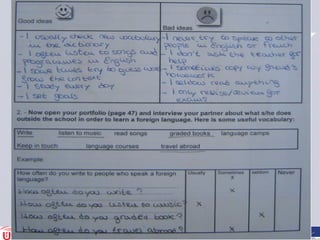 Good ideas
Bad ideas
- I usually check new vocabulary in the dictionary
- I often listen to songs and programmes in English
- I some times try to guess from the context
- I study every day
- I set goals
- I never try to speak to other people in English or French
- I don't ask the teacher for help
- I sometimes copy my friend's homework
- I seldom read anything
- I only revise/review for exams
2.- Now open your portfolio (page 47) and interview your partner about what s/he does
outside the school in order to learn a foreign language. Here is some useful vocabulary:
Write listen to music read songs graded books language camps
Keep in touch language courses travel abroad
Example:
How often do you write to people who speak a foreign language? Usually Sometimes seldom Never
x
How often do you write? x
How often do you listen to music? x
How often do you graded book? x
How often do you travel abroad? x